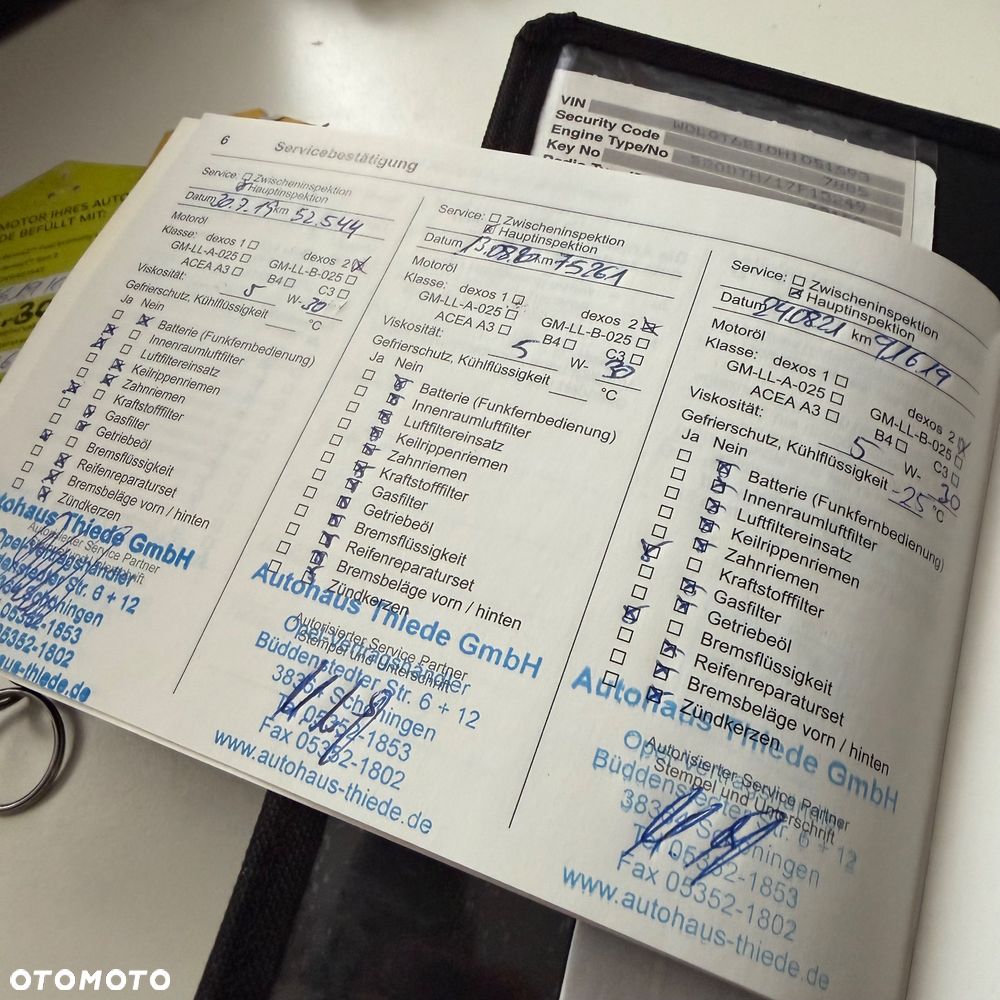 MOTOR IHRES AUTO
DE BEFÜLLT MIT:
VIN
Security Code
Engine Type/No
Key No
6
Servicebestätigung
Service: Zwischeninspektion
Hauptinspektion
Datum 30.7.19 km 52.544
Motoröl
Klasse: dexos 1 dexos 2
GM-LL-A-025 GM-LL-B-025
ACEA A3 B4 C3
Viskosität: 5 W- 30
Gefrierschutz, Kühlflüssigkeit °C
Ja Nein
Batterie (Funkfernbedienung)
Innenraumluftfilter
Luftfiltereinsatz
Keilrippenriemen
Zahnriemen
Kraftstofffilter
Gasfilter
Getriebeöl
Bremsflüssigkeit
Reifenreparaturset
Bremsbeläge vorn / hinten
Zündkerzen
Autorisierter Service Partner
ohaus Thiede GmbH
Opel-Vertragshändler
Str. 6 + 12
05352-1853
05352-1802
haus-thiede.de
Service: Zwischeninspektion
Hauptinspektion
Datum 13.08.20 km 75261
Motoröl
Klasse: dexos 1 dexos 2
GM-LL-A-025 GM-LL-B-025
ACEA A3 B4 C3
Viskosität: 5 W- 30
Gefrierschutz, Kühlflüssigkeit °C
Ja Nein
Batterie (Funkfernbedienung)
Innenraumluftfilter
Luftfiltereinsatz
Keilrippenriemen
Zahnriemen
Kraftstofffilter
Gasfilter
Getriebeöl
Bremsflüssigkeit
Reifenreparaturset
Bremsbeläge vorn / hinten
Zündkerzen
Autohaus Thiede GmbH
Autorisierter Service Partner
Stempel und Unterschrift
Opel-Vertragshändler
Büddenstedter Str. 6 + 12
38364 Schöningen
Tel 05352-1853
Fax 05352-1802
www.autohaus-thiede.de
Service: Zwischeninspektion
Hauptinspektion
Datum 240821 km 91619
Motoröl
Klasse: dexos 1 dexos 2
GM-LL-A-025 GM-LL-B-025
ACEA A3 B4 C3
Viskosität: 5 W- 30
Gefrierschutz, Kühlflüssigkeit -25 °C
Ja Nein
Batterie (Funkfernbedienung)
Innenraumluftfilter
Luftfiltereinsatz
Keilrippenriemen
Zahnriemen
Kraftstofffilter
Gasfilter
Getriebeöl
Bremsflüssigkeit
Reifenreparaturset
Bremsbeläge vorn / hinten
Zündkerzen
Autohaus Thiede GmbH
Autorisierter Service Partner
Stempel und Unterschrift
Opel-Vertragshändler
Büddenstedter Str. 6 + 12
38364 Schöningen
Tel 05352-1853
Fax 05352-1802
www.autohaus-thiede.de
OTOMOTO